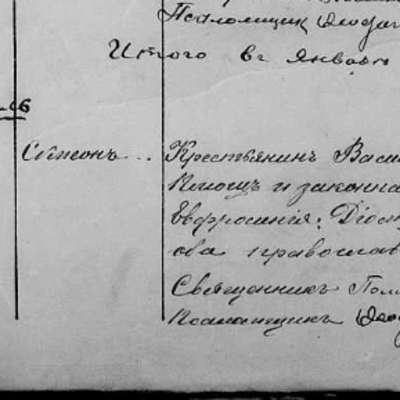 Псаломщик Феодо
Итого въ январѣ
Симеонъ ..
Крестьянинъ Васи
и законна
Евфросинія:
ова православ
Священникъ Пол
Псаломщикъ Ѳео